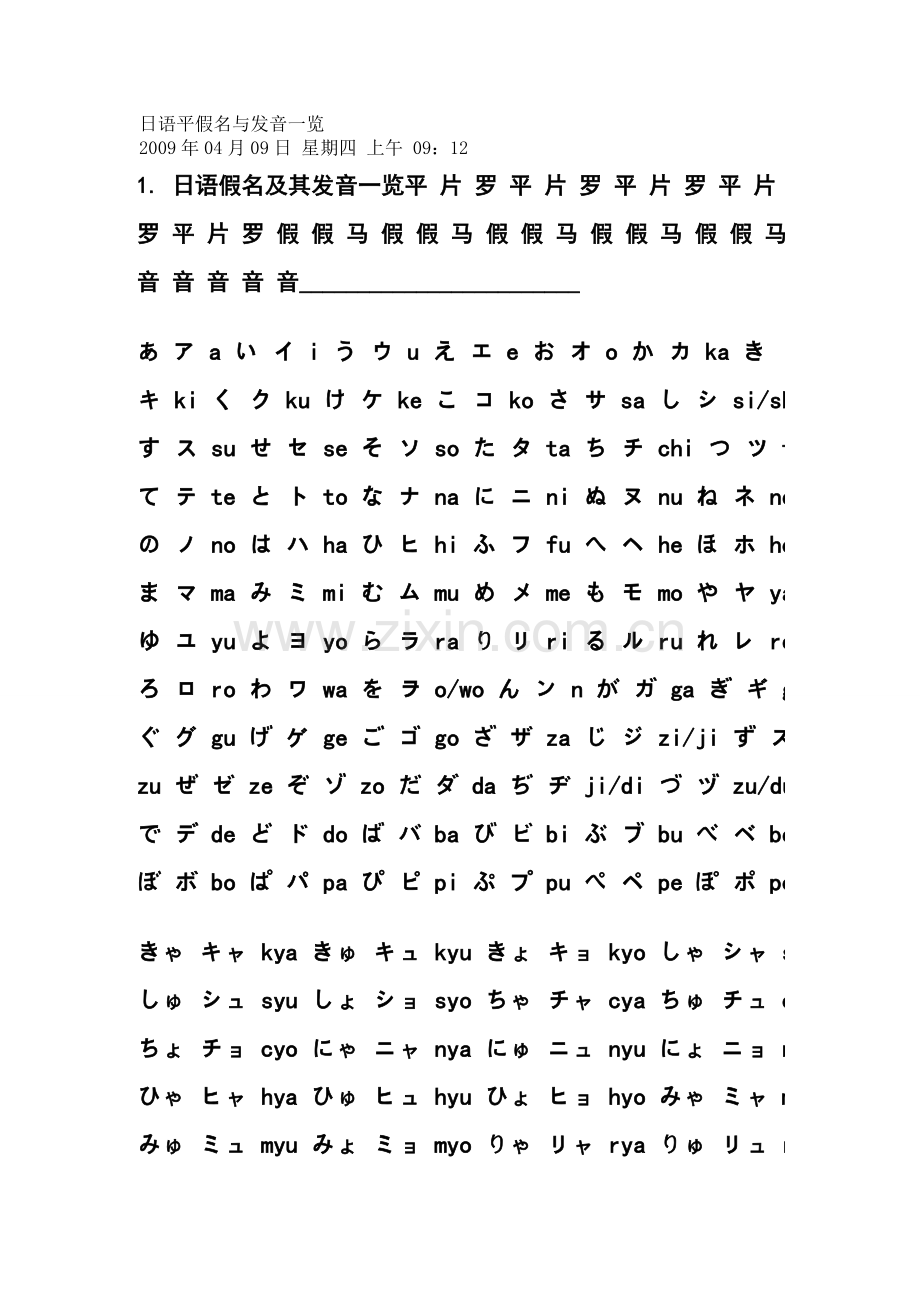 日语平假名与发音一览
2009年04月09日 星期四 上午 09：12
1. 日语假名及其发音一览平 片 罗 平 片 罗 平 片 罗 平 片
罗 平 片 罗 假 假 马 假 假 马 假 假 马 假 假 马 假 假 马
音 音 音 音 音________________________
あ ア a い イ i う ウ u え エ e お オ o か カ ka き
キ ki く ク ku け ケ ke こ コ ko さ サ sa し シ si/sh
す ス su せ セ se そ ソ so た タ ta ち チ chi つ ツ
て テ te と ト to な ナ na に ニ ni ぬ ヌ nu ね ネ ne
の ノ no は ハ ha ひ ヒ hi ふ フ fu へ ヘ he ほ ホ ho
ま マ ma み ミ mi む ム mu め メ me も モ mo や ヤ ya
ゆ ユ yu よ ヨ yo ら ラ ra り リ ri る ル ru れ レ re
ろ ロ ro わ ワ wa を ヲ o/wo ん ン n が ガ ga ぎ ギ g
ぐ グ gu げ ゲ ge ご ゴ go ざ ザ za じ ジ zi/ji ず ズ
zu ぜ ゼ ze ぞ ゾ zo だ ダ da ぢ ヂ ji/di づ ヅ zu/du
で デ de ど ド do ば バ ba び ビ bi ぶ ブ bu べ ベ be
ぼ ボ bo ぱ パ pa ぴ ピ pi ぷ プ pu ぺ ペ pe ぽ ポ po
きゃ キャ kya きゅ キュ kyu きょ キョ kyo しゃ シャ s
しゅ シュ syu しょ ショ syo ちゃ チャ cya ちゅ チュ c
ちょ チョ cyo にゃ ニャ nya にゅ ニュ nyu にょ ニョ n
ひゃ ヒャ hya ひゅ ヒュ hyu ひょ ヒョ hyo みゃ ミャ m
みゅ ミュ myu みょ ミョ myo りゃ リャ rya りゅ リュ r
www.zixin.com.cn